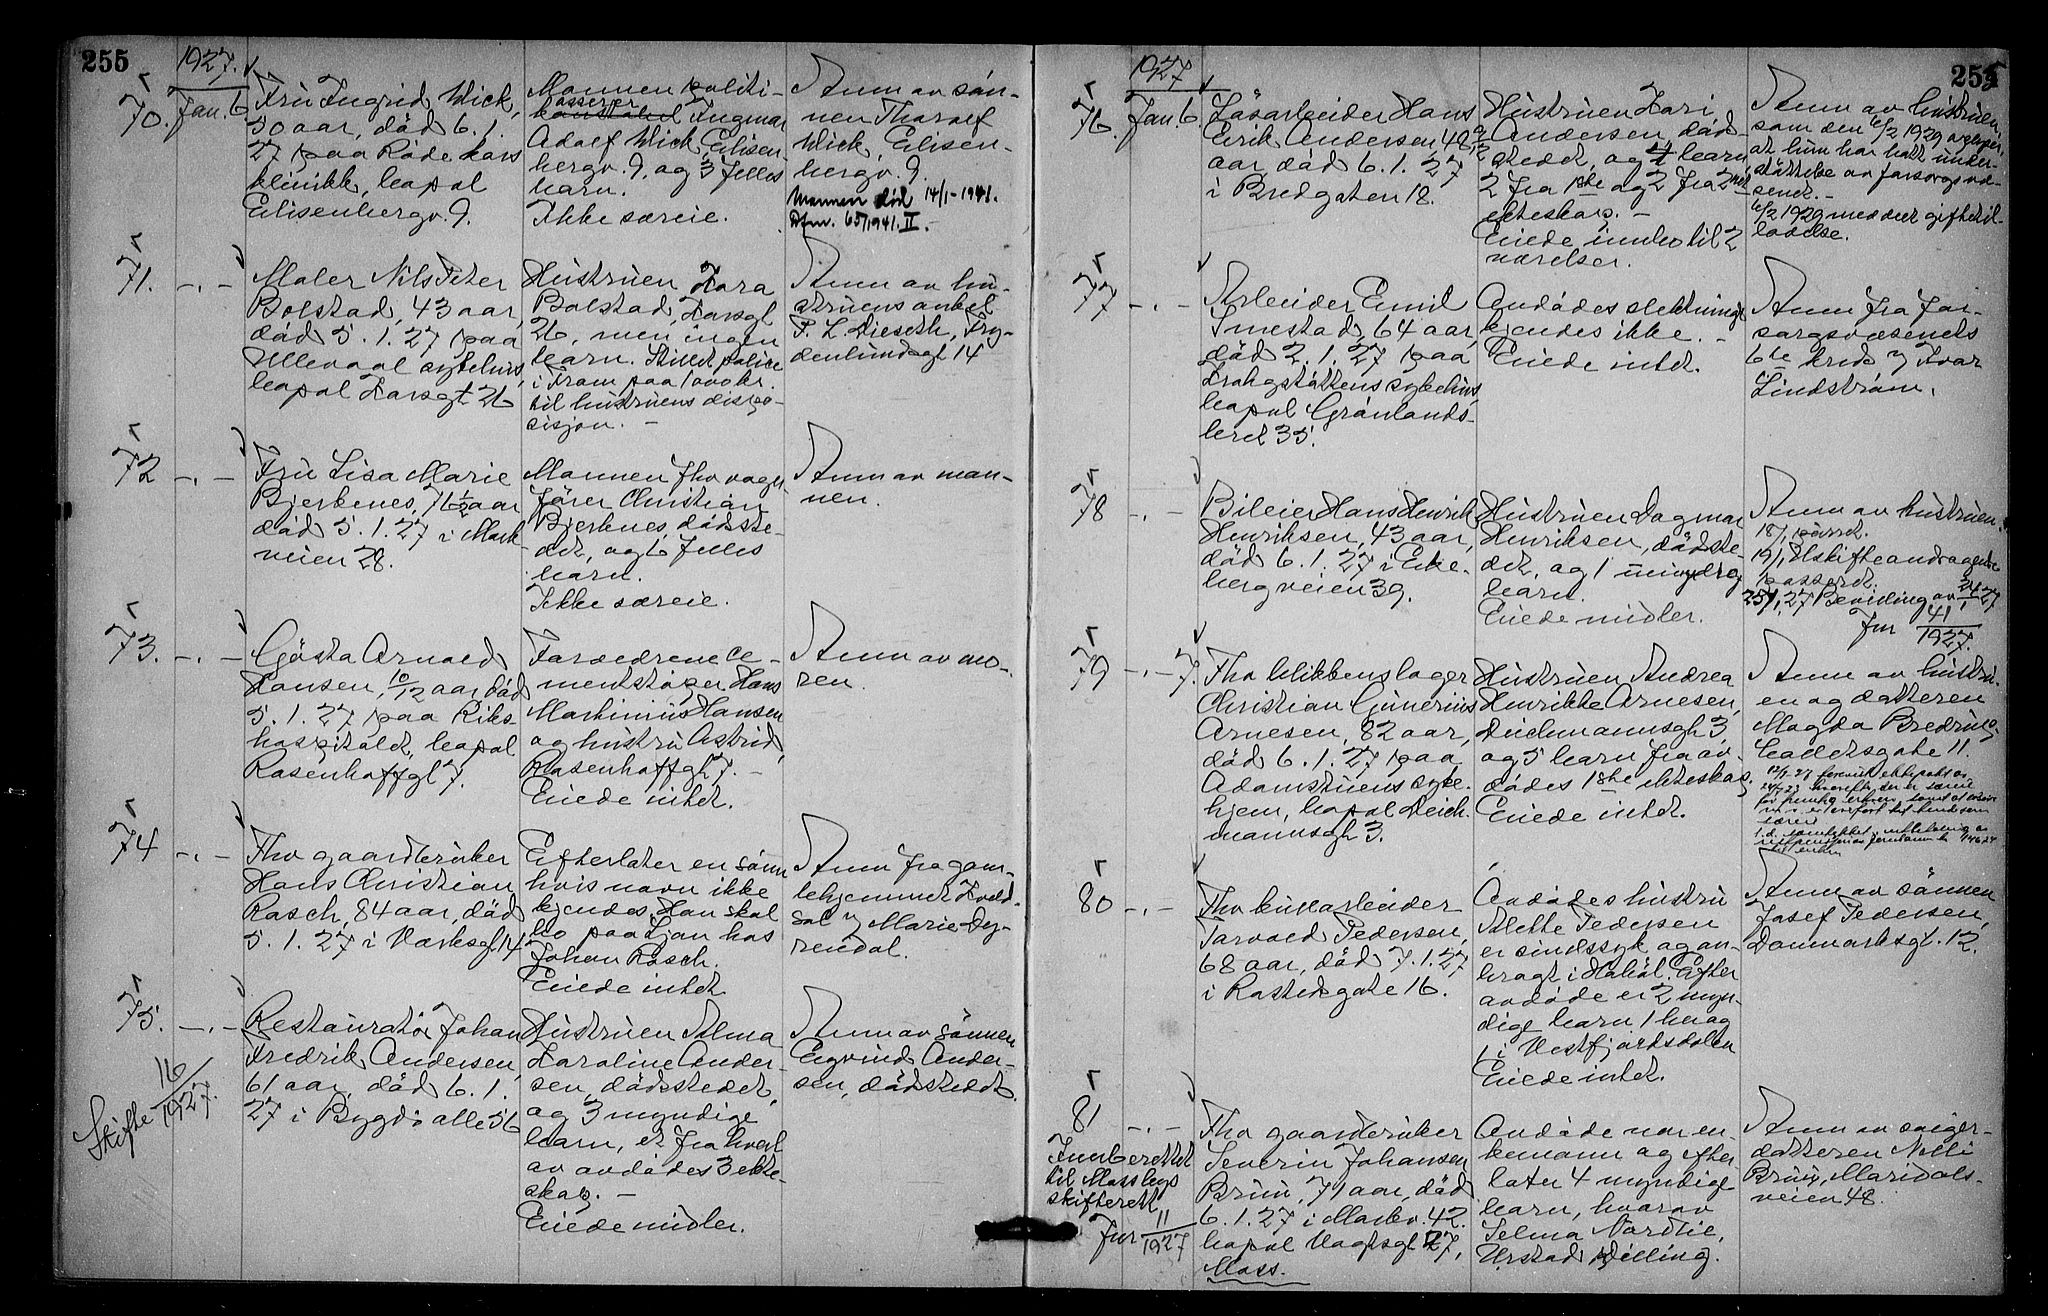 255
1927.
70. Jan. 6
Fru Ingrid Wick,
50 aar, död 6. 1.
27 paa Röde kors
klinikk, bopæl
Elisenbergv. 9.
Mannen politi-
kasserer
konstabel Ingmar
Adolf Wick, Elisen-
bergv. 9, og 3 felles
barn.
Ikke særeie.
Anm av søn-
nen Thoralf
Wick, Elisen-
bergv. 9.
Mannen död 14/1-1941.
Dfm. 657/1941. II.
71. -.-
Maler Nils Peter
Bolstad, 43 aar,
död 5. 1. 27 paa
Ullevaal sykehus,
bopæl Korsgt 26
Hustruen Kara
Bolstad, Korsgt
26, men ingen
barn.
i Fram paa 1000 kr.
til hustruens dispo-
sisjon. -
Anm av hu-
struens onkel
P. L. Lieseth, Fry-
denlundsgt 14
72 -.-
Fru Lisa Marie
Bjerkenes, 76 1/2 aar
död 5. 1. 27 i Mark-
veien 28.
Mannen fhv vogn-
fører Christian
Bjerknes, dödste-
det, og 6 felles
barn.
Ikke særeie.
Anm av man-
nen.
73. -.-
Gösta Arnold
Hansen, 10/12 aar, död
5. 1. 27 paa Riks-
hospitalet, bopæl
Rosenhoffgt 7.
Forældrene ce-
mentstøper Hans
Martinius Hansen
og hustru Astrid,
Rosenhoffgt 7. -
Eiede intet.
Anm av mo-
ren.
74 -.-
Fhv gaardbruker
Hans Christian
Rasch, 84 aar, död
5. 1. 27 i Værksgt 14
Efterlater en sönn
hvis navn ikke
kjendes. Han skal
bo paa Ljan hos
Johan Rasch.
Eiede intet
Anm fra gam-
lehjemmet Kveld-
sol v/ Marie Dy-
rendal.
75. -.-
Skifte 116/1927.
Restauratör Johan
Fredrik Andersen,
61 aar, död 6. 1.
27 i Bygdö alle 56
Hustruen Alma
Karoline Ander-
sen, dödsstedet,
og 3 myndige
barn, et fra hvert
av avdödes 3 ekte-
skap. -
Eiede midler.
Anm av sönnen
Eyvind Ander-
sen, dödsstedet.
255
1927
76. Jan. 6.
Lösarbeider Hans
Erik Andersen, 48 9/12
aar, död 6. 1. 27
i Bredgaten 18.
Hustruen Kari
Andersen, död-
stedet, og 4 barn
2 fra 1ste og 2 fra 2net
ekteskap. -
Eiede innbo til 2
værelser.
Anm av hustruen,
som den 6/2 1929 opgir,
at hun har hatt under-
støttelse av forsorgsvæ-
senet. -
6/2 1929 meddelt giftetil-
ladelse.
77 -.-
Arbeider Emil
Smestad, 64 aar,
död 2. 1. 27 paa
Krohgstöttens sykehus,
bopæl Grönlands-
leret 35.
Avdödes slektninge
kjendes ikke. -
Eiede intet.
Anm fra For-
sorgsvæsenets
6te krets v/ Ivar
Lindström.
78 -.-
Bileier Hans Henrik
Henriksen, 43 aar,
död 6. 1. 27 i Eke-
bergveien 39.
Hustruen Dagmar
Henriksen, dödste-
det, og 1 umyndig
barn.
Eiede midler.
Anm av hustruen.
18/1 passet.
19/1 Uskifteandragende
passeret.
25/1 27 Bevilling av 24/1 27
Jnr 41/1927.
79 -.- 7.
Fhv blikkenslager
Christian Gunerius
Arnesen, 82 aar,
död 6. 1. 27 paa
Adamstuens syke-
hjem, bopæl Deich-
mannsgt 3.
Hustruen Andrea
Henrikke Arnesen,
Deichmannsgt 3,
og 5 barn fra av-
dödes 1ste ekteskap.
Eiede intet.
Anm av hustru-
en og datteren
Magda Bredrup
Calmeyersgate 11.
80 -.-
Fhv bruksarbeider
Torvald Pedersen,
68 aar, död 7. 1. 27
i Rostedsgate 16.
Avdödes hustru
Alette Pedersen
er sindssyk og an-
bragt i Hobøl. Efter
avdöde er 2 myn-
dige barn, 1 her og
1 i Vestfjordsdalen
Eiede intet.
Anm av sönnen
Josef Pedersen,
Danmarksgt. 12.
81 -.-
Innberettet
til Moss bys
skifterett
Jnr 11/1927
Fhv gaardbruker
Severin Johansen
Bruu, 71 aar, död
6. 1. 27 i Markv. 42.
bopæl Vogtsgt 27,
Moss.
Avdöde var en-
kemann og efter-
later 4 myndige
barn, hvorav
Selma Nordlie,
Urstad, Dilling.
Anm av sviger-
datteren Nelli
Bruu, Maridals-
veien 48.